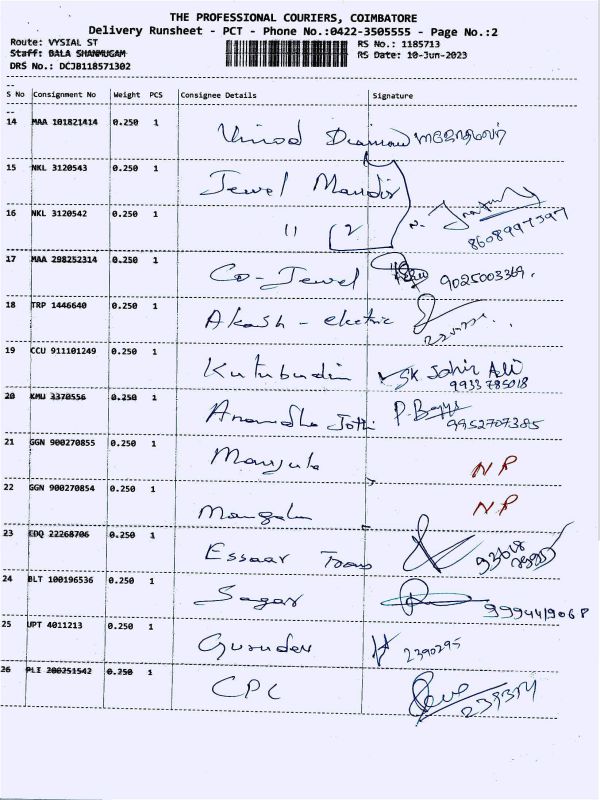 THE PROFESSIONAL COURIERS, COIMBATORE
Delivery Runsheet - PCT - Phone No.:0422-3505555 - Page No.:2
Route: VYSIAL ST
RS No.: 1185713
Staff: BALA SHANMUGAM
RS Date: 10-Jun-2023
DRS No.: DCJB118571302
S No Consignment No Weight PCS Consignee Details Signature
14 MAA 101821414 0.250 1 Vinod
15 NKL 3120543 0.250 1 Jewel Mandir
16 NKL 3120542 0.250 1 11 2
8608997597
17 MAA 298252314 0.250 1 Co-Jewel 9025003369.
18 TRP 1446640 0.250 1 Akash - electric
19 CCU 911101249 0.250 1 Kutubudin SK Jahir Ali
9933785018
20 KMU 3370556 0.250 1 Anandha Jothi P.
9952707385
21 GGN 900270855 0.250 1 Manjula NP
22 GGN 900270854 0.250 1 NP
23 EDQ 22268706 0.250 1 Essaar
24 BLT 100196536 0.250 1 Sagar 9994419068
25 UPT 4011213 0.250 1 Gurudev 2390295
26 PLI 200251542 0.250 1 CPC